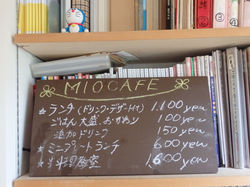 MIOCAFE
★ランチ(ドリンク・デザート付) 1,100 yen
ごはん大盛、おかわり 100 yen
追加ドリンク 150 yen
★ミニプレートランチ 600 yen
★料理教室 1,600 yen